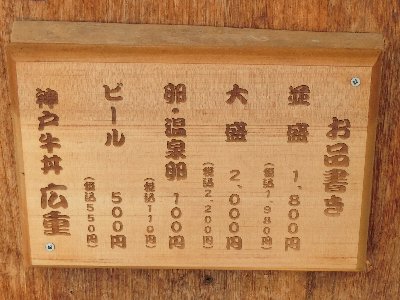 お品書き
並盛 1,800円
(税込1,980円)
大盛 2,000円
(税込2,200円)
卵・温泉卵 100円
(税込110円)
ビール 500円
(税込550円)
神戸牛丼 広重